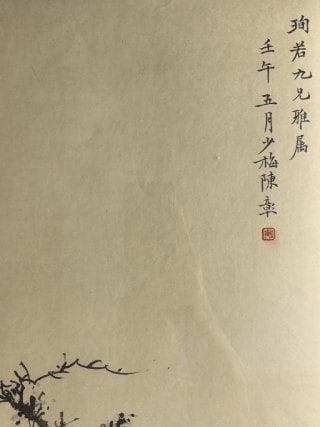 珣若九兄雅属
壬午五月少梅陳彰